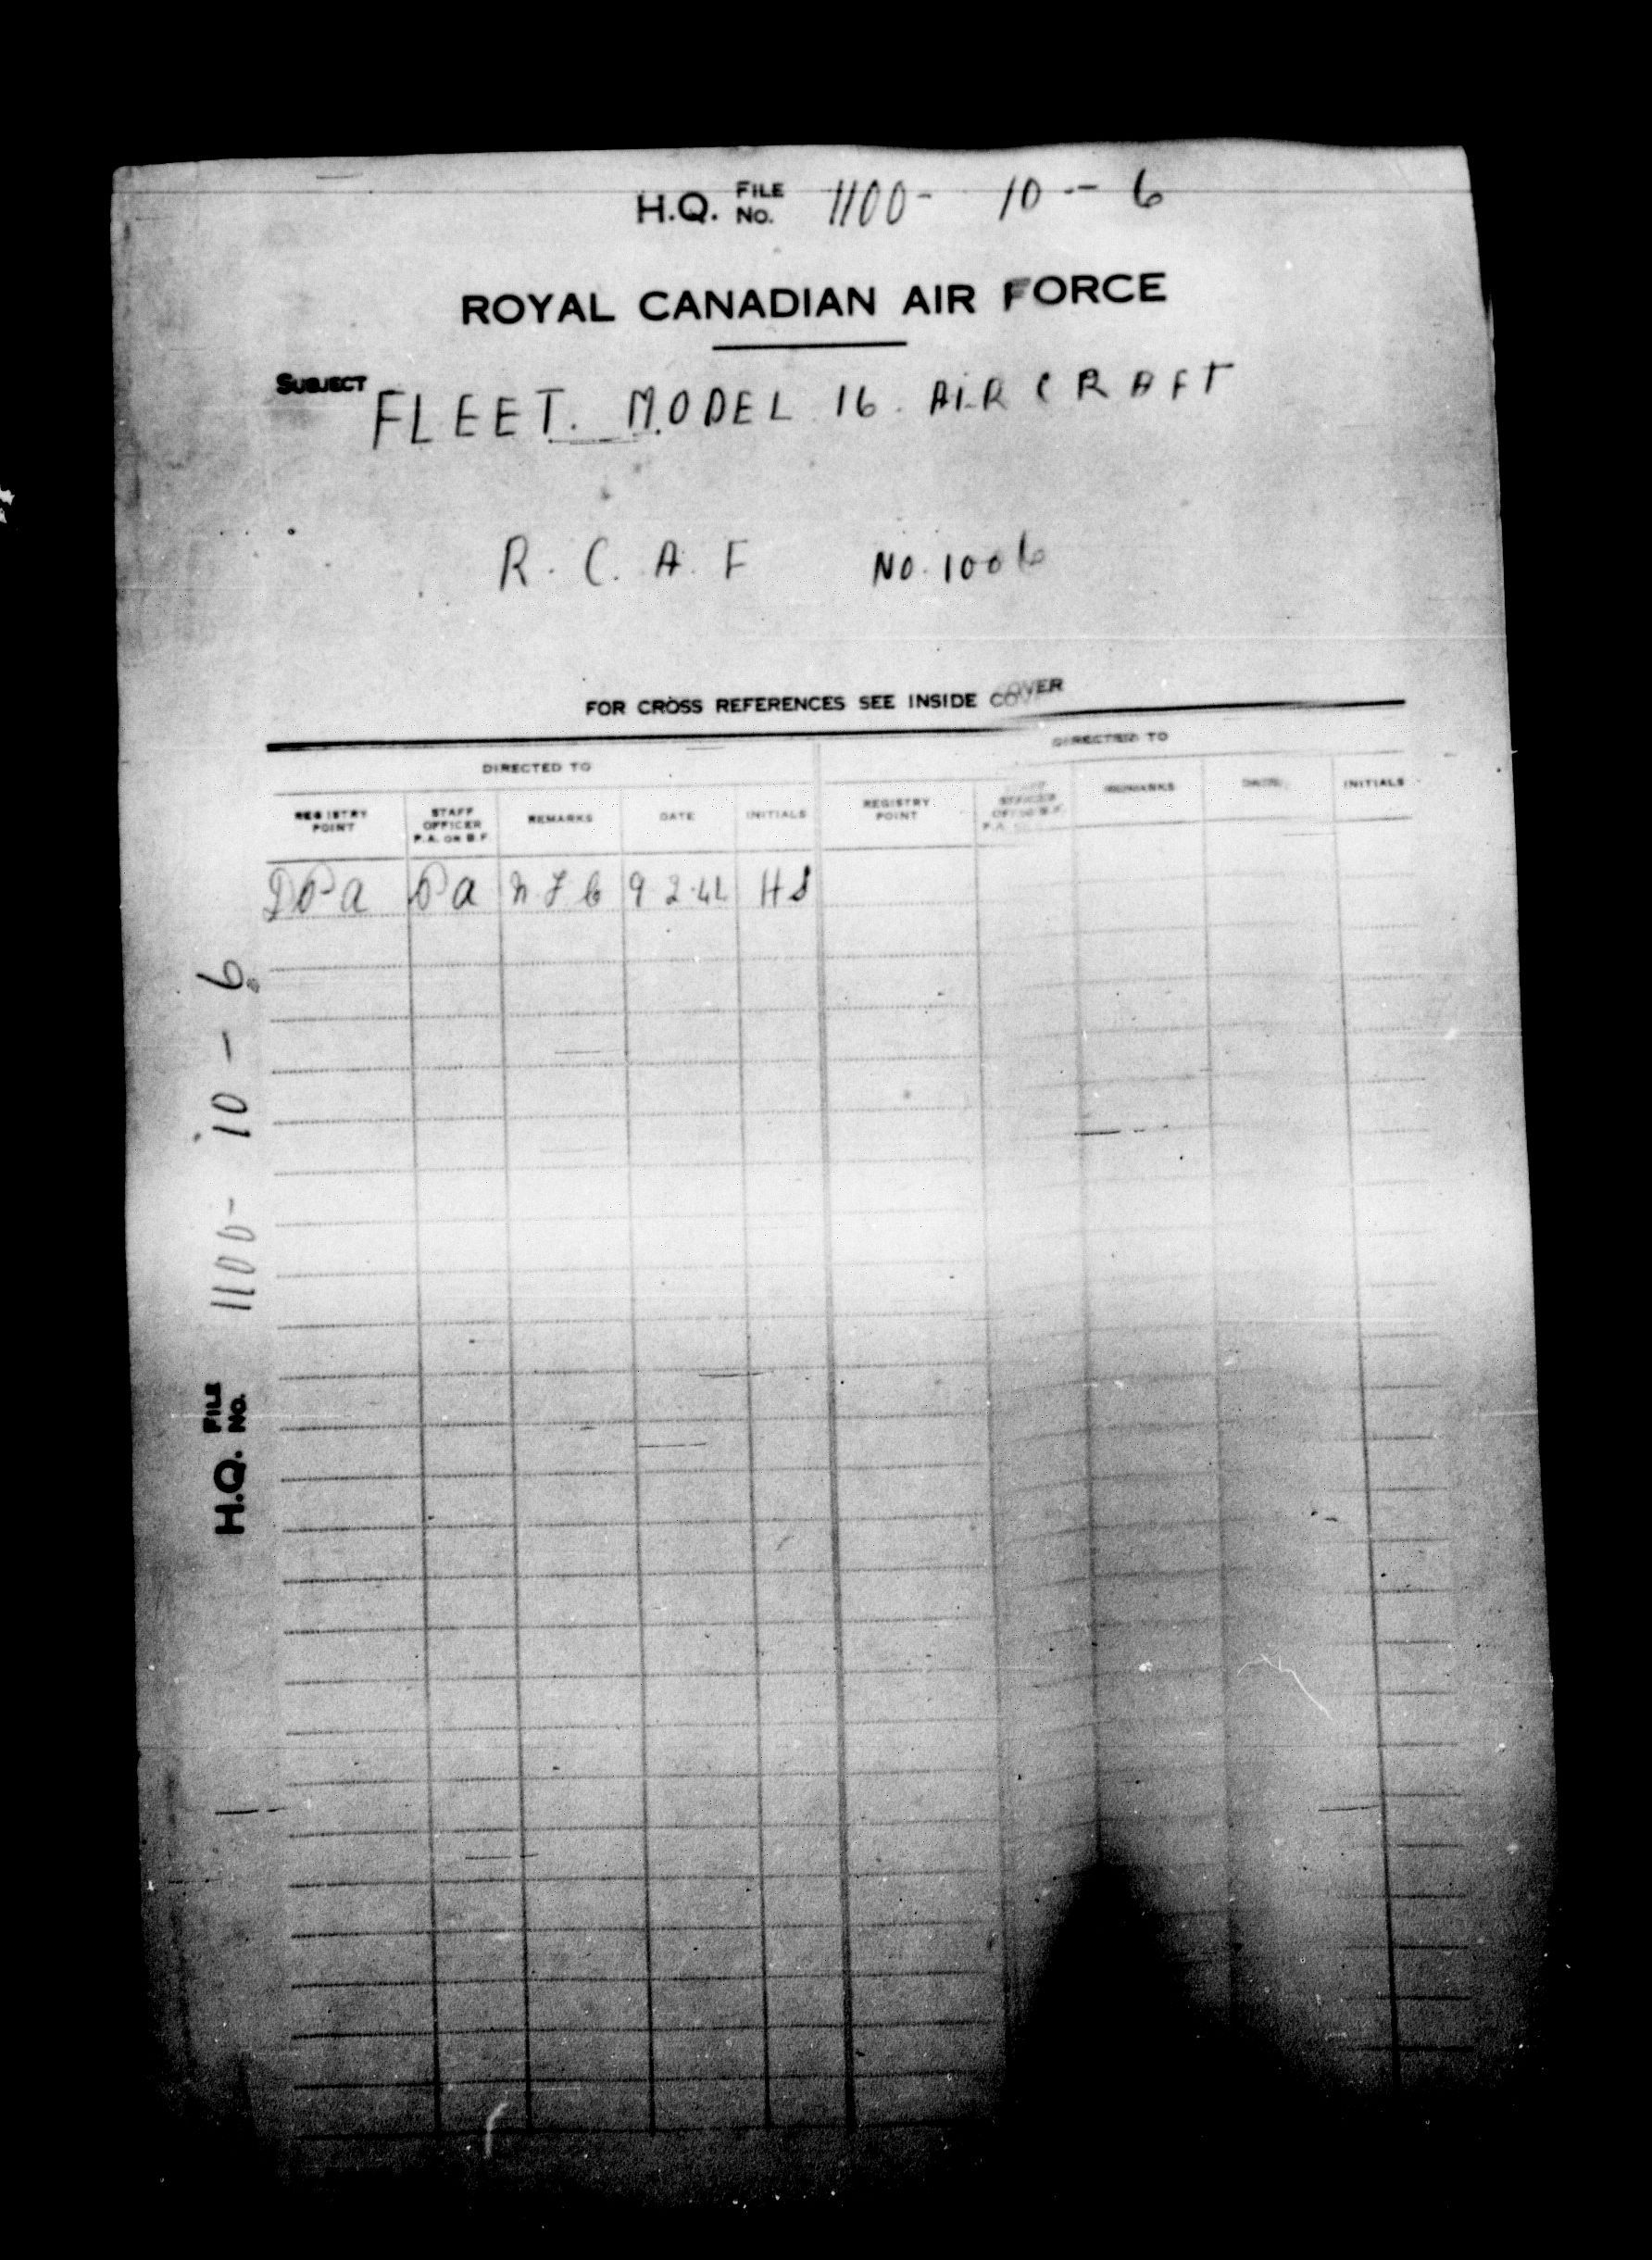 H.Q. FILE No. 1100- 10-6
ROYAL CANADIAN AIR FORCE
SUBJECT FLEET. MODEL 16. AIRCRAFT
R.C.A.F NO. 1006
FOR CROSS REFERENCES SEE INSIDE COVER
DIRECTED TO DIRECTED TO
REGISTRY POINT STAFF OFFICER P.A. OR B.F. REMARKS DATE INITIALS REGISTRY POINT OFFICER P.A. REMARKS DATE INITIALS
DPA PA 9 2.
H.Q. FILE No. 1100- 10-6